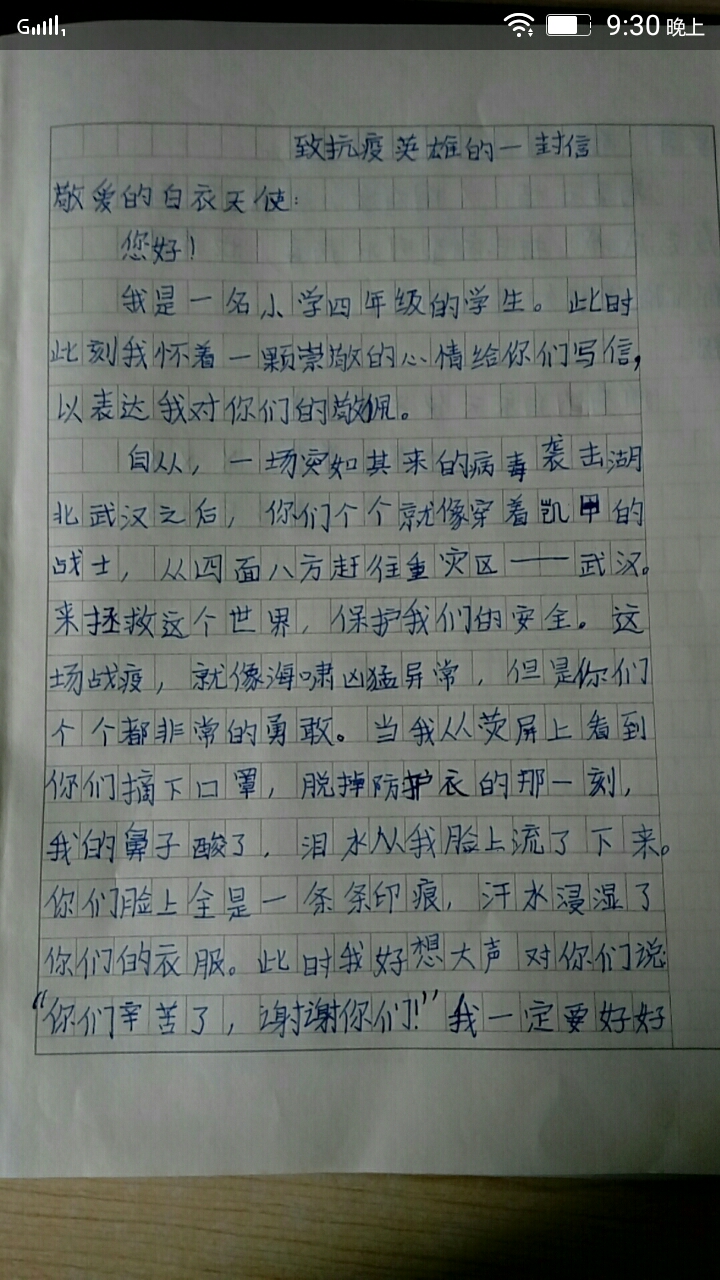 G
9:30 晚上
致抗疫英雄的一封信
敬爱的白衣天使：
您好！
我是一名小学四年级的学生。此时
此刻我怀着一颗崇敬的心情给你们写信，
以表达我对你们的敬佩。
自从，一场突如其来的病毒袭击湖
北武汉之后，你们个个就像穿着凯甲的
战士，从四面八方赶往重灾区——武汉。
来拯救这个世界，保护我们的安全。这
场战疫，就像海啸凶猛异常，但是你们
个个都非常的勇敢。当我从荧屏上看到
你们摘下口罩，脱掉防护衣的那一刻，
我的鼻子酸了，泪水从我脸上流了下来。
你们脸上全是一条条印痕，汗水浸湿了
你们的衣服。此时我好想大声对你们说
“你们辛苦了，谢谢你们！”我一定要好好